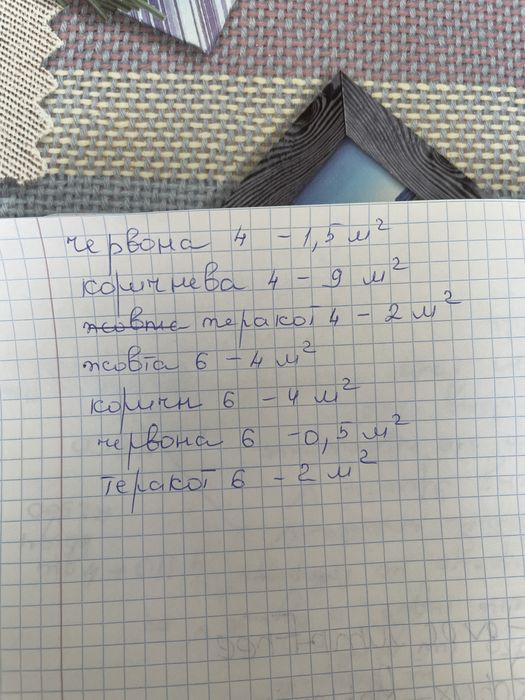 червона 4 - 1,5 м²
коричнева 4 - 9 м²
жовте теракот 4 - 2 м²
жовта 6 - 4 м²
коричн 6 - 4 м²
червона 6 - 0,5 м²
теракот 6 - 2 м²